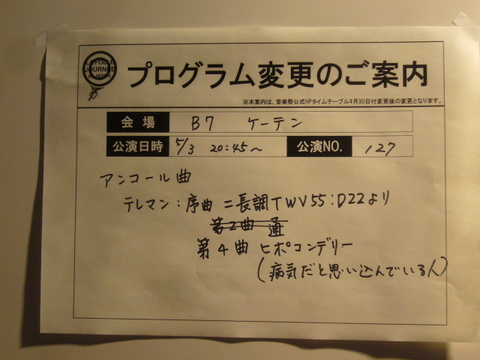 LA FOLLE JOURNÉE
プログラム変更のご案内
※本案内は、音楽祭公式HPタイムテーブル4月30日付変更後の変更となります。
会場 B7 ケーテン
公演日時 5/3 20:45〜 公演NO. 127
アンコール曲
テレマン:序曲 ニ長調TWV55:D22より
第2曲 通
第4曲 ヒポコンデリー
(病気だと思い込んでいる人)